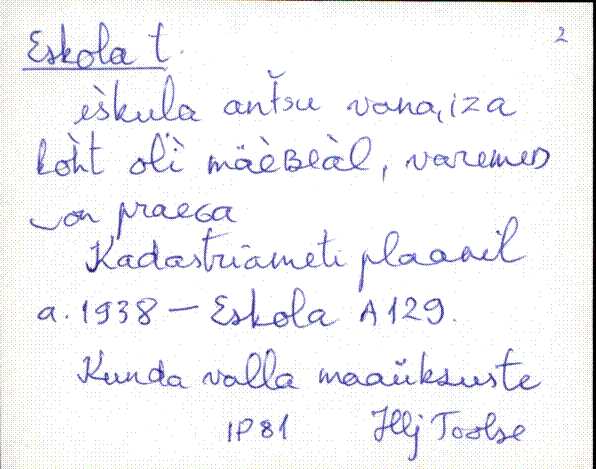 Eskola t.
2
eškula antsu vana,iza
kòht olì mäèʙeàl, varemeᴅ
on praeɢa
Kadastriameti plaanil
a. 1938 – Eskola A129.
Kunda valla maaüksuste
IP81 Hlj Toolse